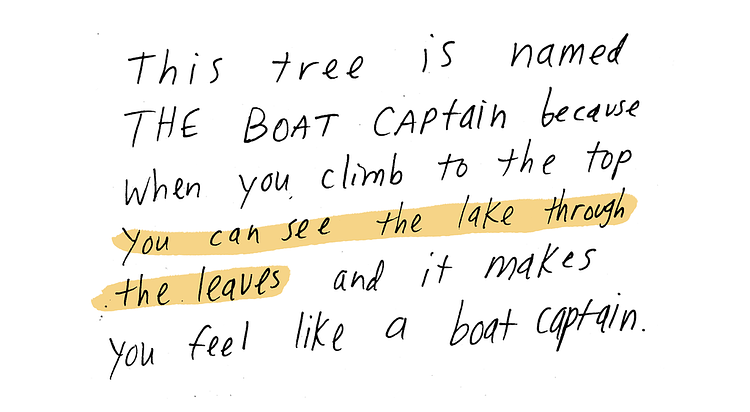 This tree is named
THE BOAT CAPtain because
when you climb to the top
you can see the lake through
the leaves and it makes
you feel like a boat captain.